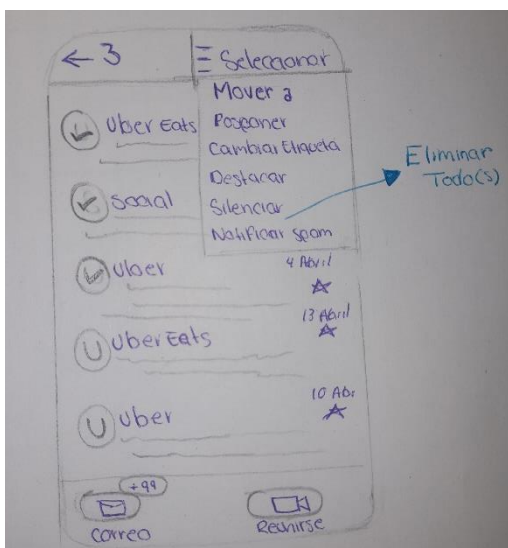 ← 3
☰ Seleccionar
Mover a
Posponer
Cambiar Etiqueta
Destacar
Silenciar
Notificar spam
Eliminar
Todo(s)
Uber Eats
Social
Uber
4 Abril
U Uber Eats
13 Abril
U Uber
10 Abr
+99
Correo
Reunirse